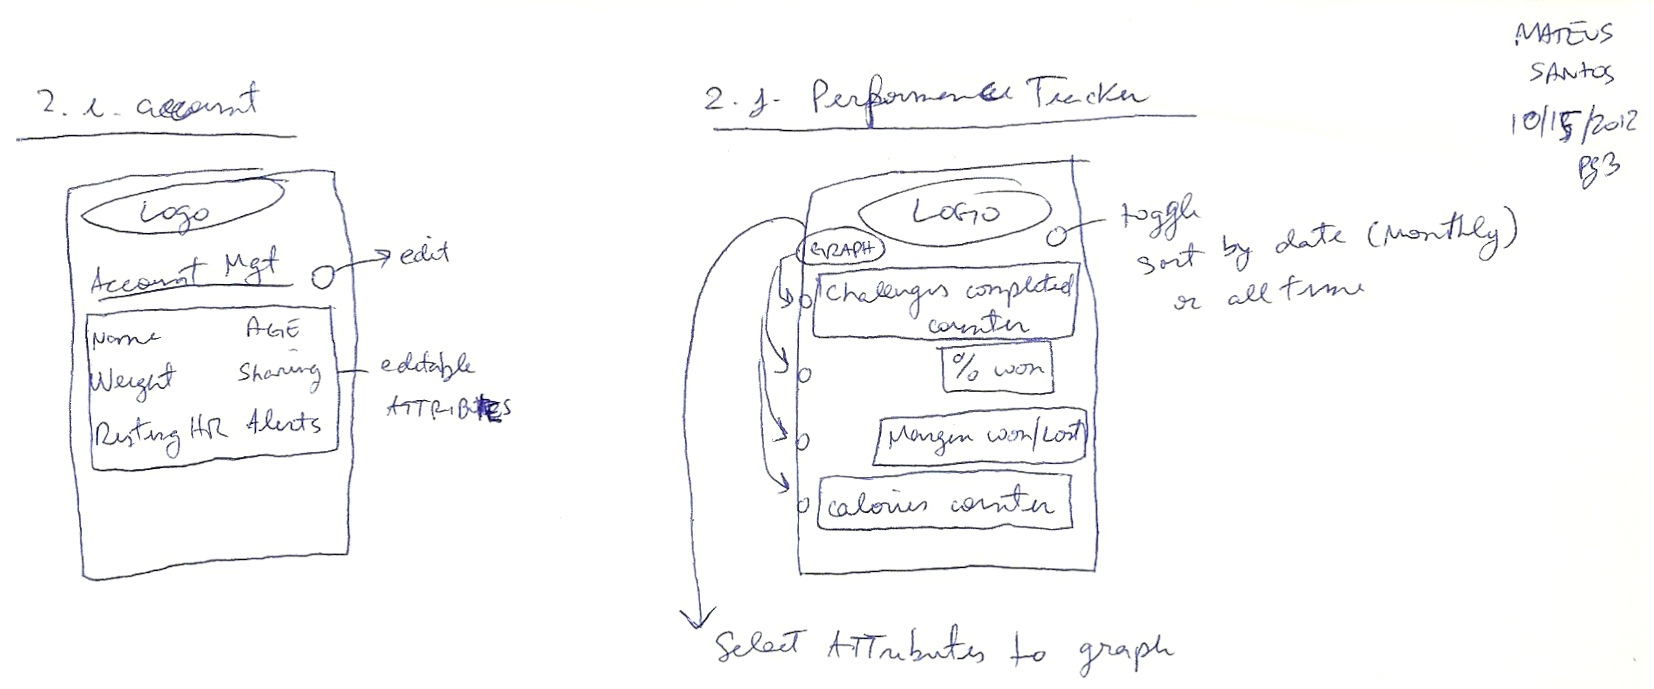 MATEUS
SANTOS
10/15/2012
Pg 3
2. i. account
Logo
Account Mgt
edit
Name AGE
Weight Sharing
Resting HR Alerts
editable
ATTRIBTES
2. j. Performance Tracker
LOGO
GRAPH
toggle
sort by date (Monthly)
or all time
Challenges completed
counter
% won
Margin won/Lost
calories counter
Select ATTributes to graph